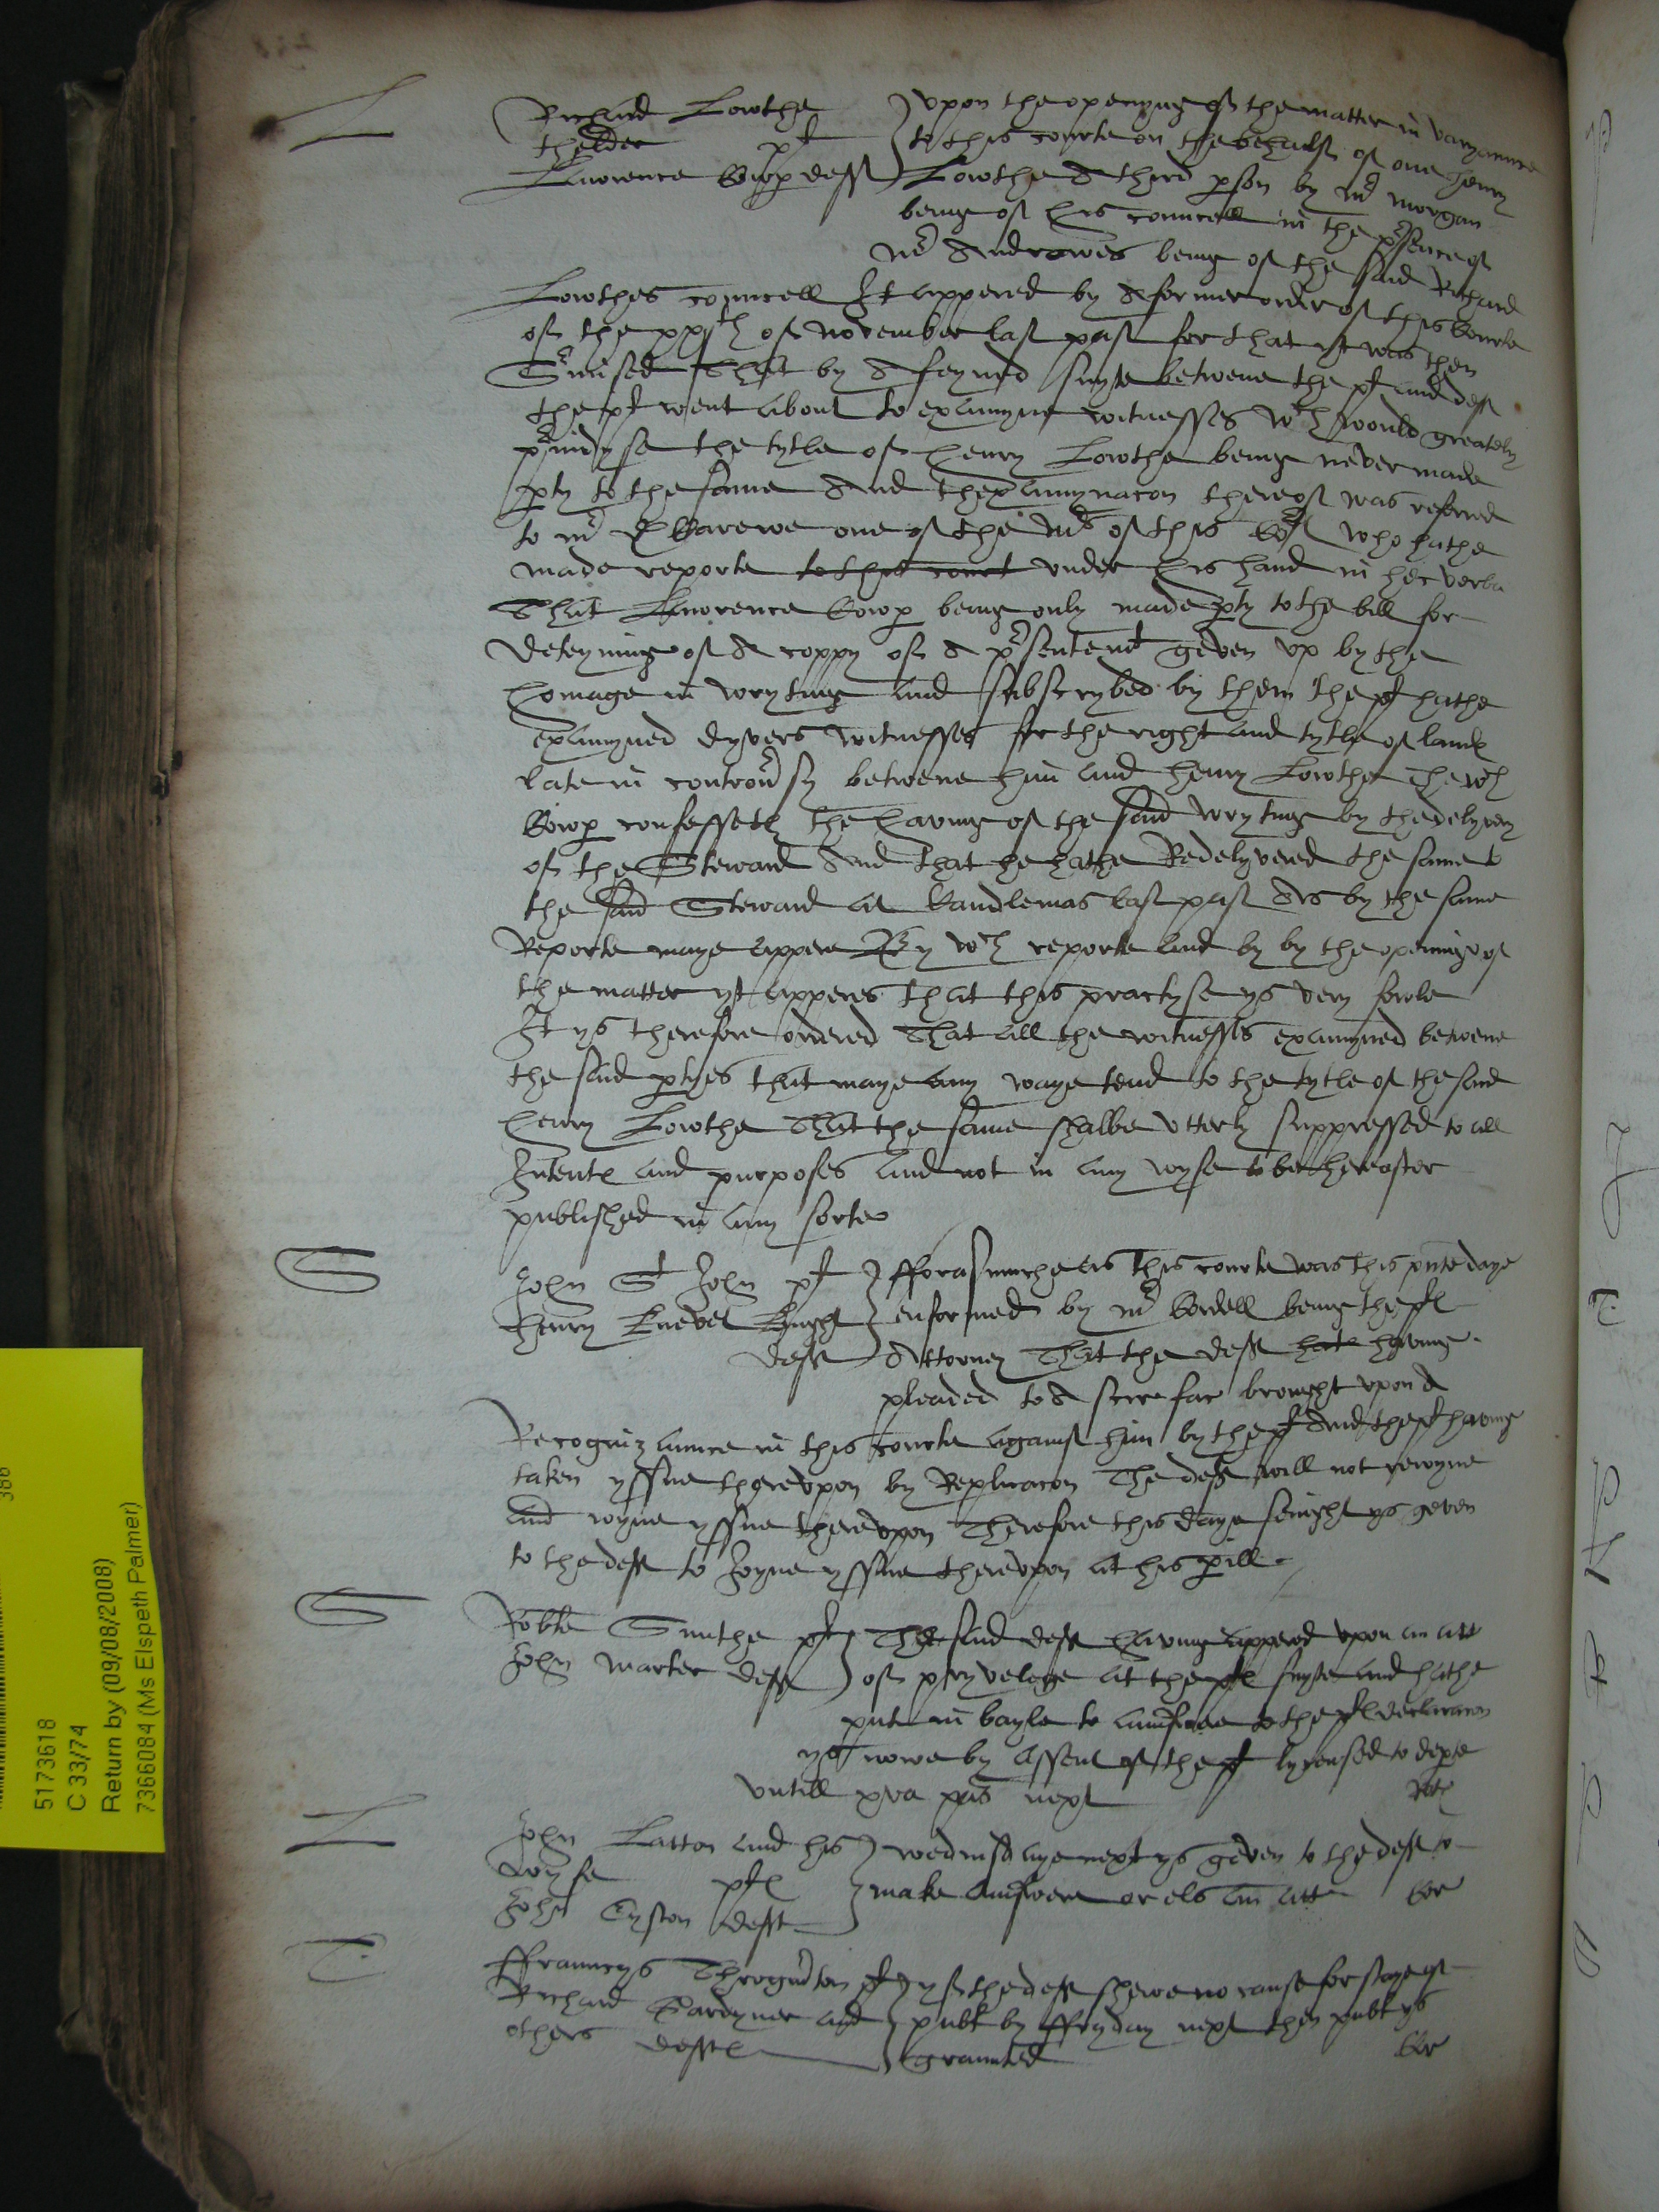 L
Richard Lowthe
thelder pl
Lawrence Cowp deff
upon the openyng of the matter in varyaunce
to this courte on the behalf of one Henry
Lowthe A third pson by mr morgan
being of his councell in the psence of
mr Andrewes being of the said Richard
Lowthes councell It appered by A former order of this Courte
of the xxjth of november last past for that yt was then
Surmised That by A feyned suyte betwene the pl and deff
the pl went about to examyne witnesses wch would greately
pjudyse the tytle of Henry Lowthe being never made
pty to the same And thexamynacon thereof was referred
to mr D Barewe one of the mrs of this Cort who hathe
made reporte to this court under his hand in hec verba
That Lawrence Cowp being only made pty to the bill for
deteyning of A coppy of A psentent geven up by the
homage in wryting and subscrybed by them the pl hathe
examyned dyvers witnesses for the right and tytle of landes
late in controusy betwene him and Henry Lowthe The wch
Cowp confesseth the having of the said wryting by the delyvery
of the Steward And that he hathe Redelyvered the same to
the said Steward at Candlemas last past As by the same
Reporte maye appere By wch reporte and by by the opening of
the matter yt apperes that this practyse ys very fowle
It ys therefore ordered That all the witnesses examyned betwene
the said ptyes that maye any waye tend to the tytle of the said
Henry Lowthe That the same shalbe utterly suppressed to all
Intentes and purposes and not in any wyse to be hereafter
published in any sorte
S
John St John pl
Henry Knevet knight
deff
fforasmuche as this courte was this pnte daye
enformed by mr Cordell being the ples
Attorney That the deff hath having
pleaded to A scire fac brought upon A
Recognizaunce in this courte against him by the pl And the pl having
taken yssue thereupon by Replicacon The deff will not rejoyne
and joyne yssue thereupon Therefore this daye senight ys geven
to the deff to Joyne yssue thereupon at his pill
S
Robte Smithe pl
John Marter deff
The said deff having appered upon an att
of pryvelege at the ples suyte and hathe
put in bayle to aunswer to the ples declaracon
ys nowe by assent of the pl lycensed to depte
untill xva pas next
L
John Latton and his
wyfe ples
John Eyston deff
wednisdaye next ys geven to the deff to
make aunswere or els an att Cor
T
ffrauncys Throgmton pl
Richard Gardyner and
others deffes
yf the deff shewe no cause for staye of
publ by ffryday next then publ ys
graunted Cor
5173618
C 33/74
Return by (09/08/2008)
7366084 (Ms Elspeth Palmer)